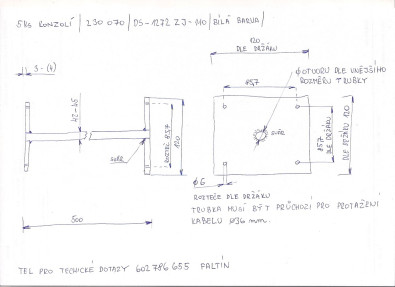 5KS KONZOLÍ / 230 070 / DS-1272 ZJ-110 / BÍLÁ BARVA /
120
DLE DRŽÁKU
3-(4)
85,7
Ø OTVORU DLE VNĚJŠÍHO
ROZMĚRU TRUBKY
42-45
SVÁR
ROZTEČ 85,7
120
SVÁR
85,7
DLE DRŽÁKU
DLE DRŽÁKU 120
Ø6
500
ROZTEČE DLE DRŽÁKU
TRUBKA MUSÍ BÝT PRŮCHOZÍ PRO PROTAŽENÍ
KABELU Ø36 mm.
TEL PRO TECHICKÉ DOTAZY 602 786 655 PALTÍN